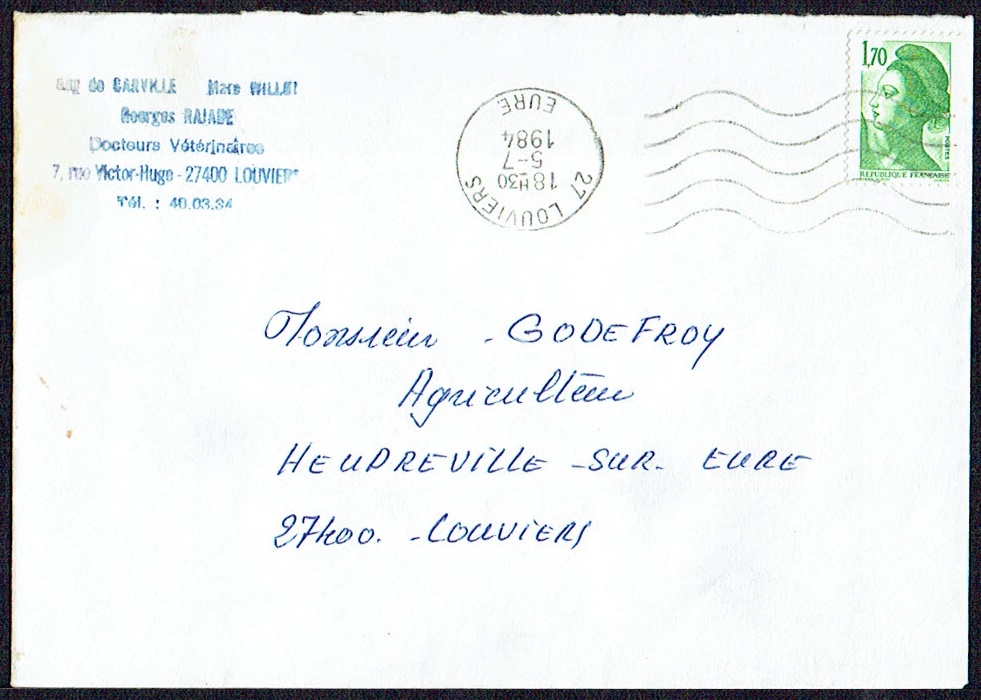 Guy de CARVILLE Marc WILLET
Georges RAJADE
Docteurs Vétérinaires
7, rue Victor-Hugo - 27400 LOUVIERS
Tél. : 40.03.34
27 LOUVIERS
18H30
5-7
1984
EURE
1,70
POSTES
REPUBLIQUE FRANCAISE
Monsieur - GODEFROY
Agriculteur
HEUDREVILLE - SUR - EURE
27400. - LOUVIERS